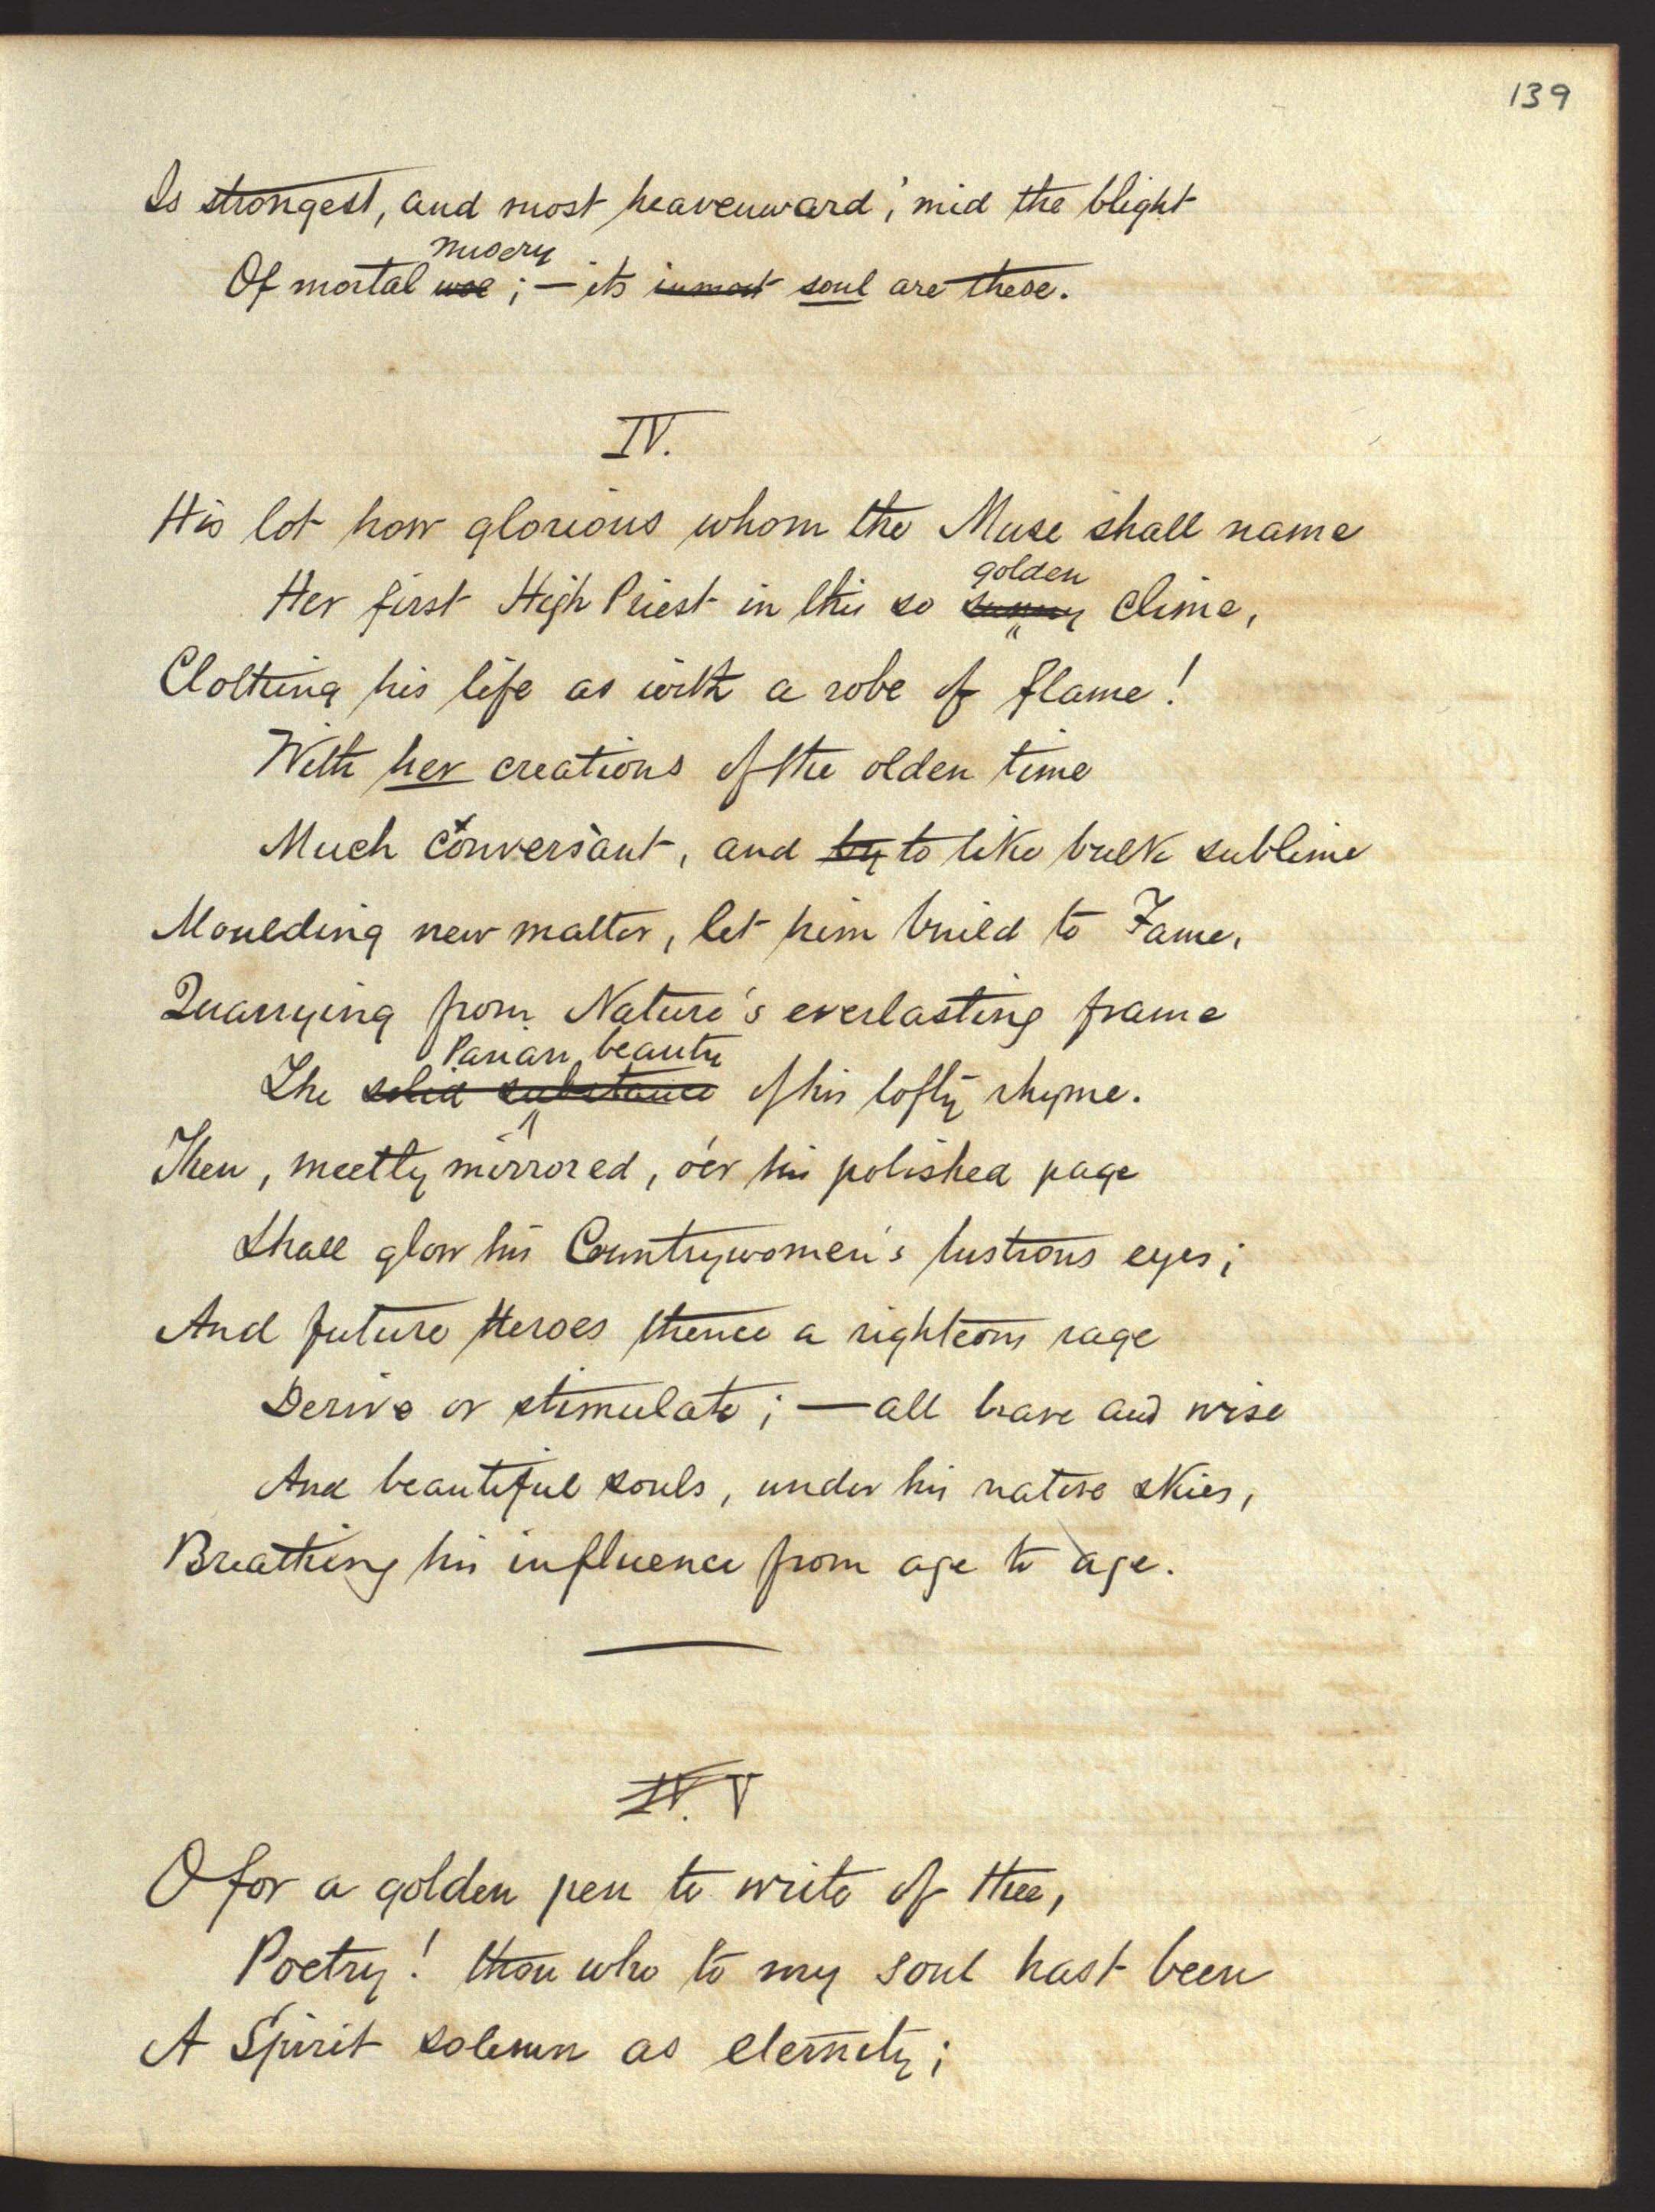 139
Is strongest, and most heavenward, 'mid the blight
misery
Of mortal woe ; — its inmost soul are these.
IV.
His lot how glorious whom the Muse shall name
golden
Her first High Priest in this so sunny clime,
Clothing his life as with a robe of flame!
With her creations of the olden time
Much conversant, and by to like bulk sublime
Moulding new matter, let him build to Fame,
Quarrying from Nature's everlasting frame
Parian beauty
The solid substance of his lofty rhyme.
Then, meetly mirrored, o'er his polished page
Shall glow his Countrywomen's lustrous eyes;
And future Heroes thence a righteous rage
Derive or stimulate; — all brave and wise
And beautiful souls, under his native skies,
Breathing his influence from age to age.
IV. V
O for a golden pen to write of thee,
Poetry! thou who to my soul hast been
A Spirit solemn as eternity;